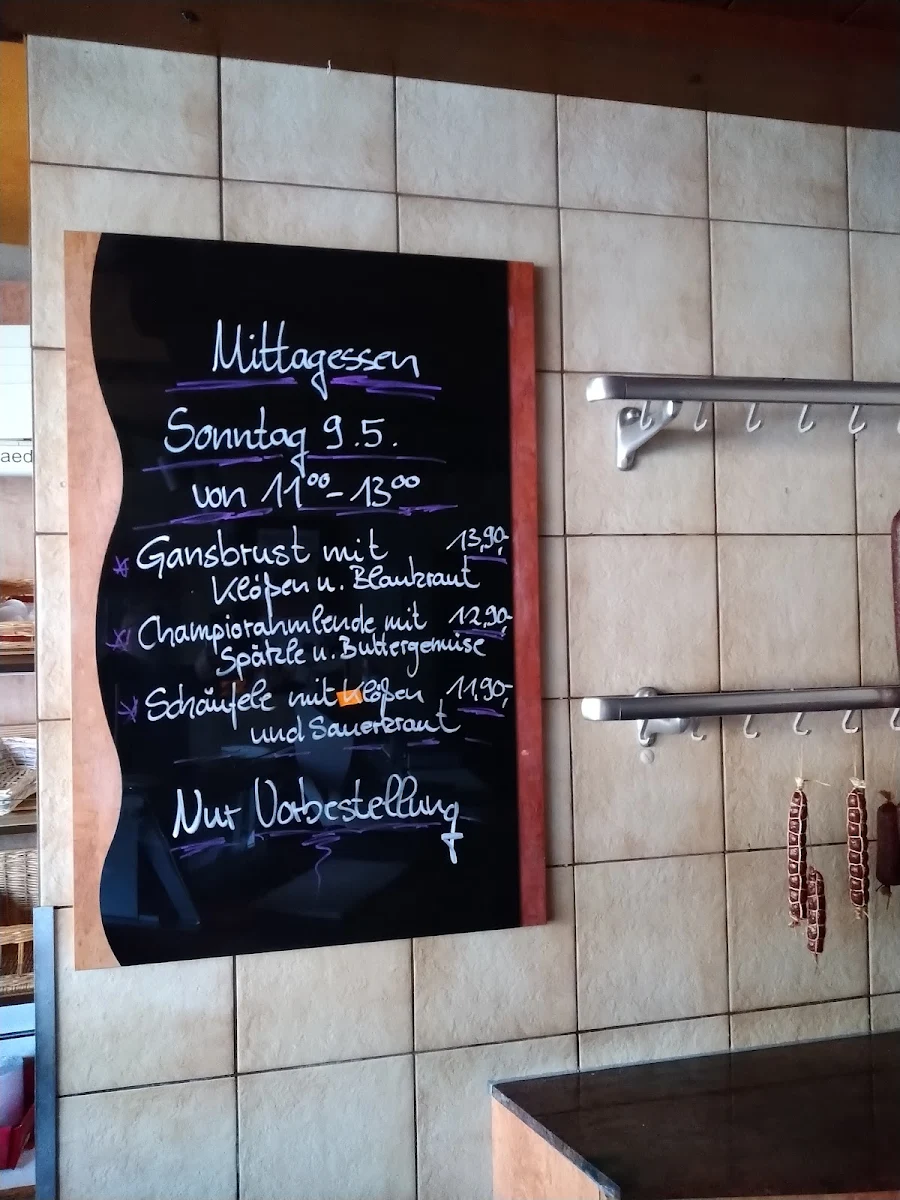 Mittagessen
Sonntag 9.5.
von 11⁰⁰-13⁰⁰
Gansbrust mit 13,90-
Klößen u. Blaukraut
Champiorahmlende mit 12,90-
Spätzle u. Buttergemüse
Schäufele mit Klößen 11,90-
und Sauerkraut
Nur Vorbestellung
aed